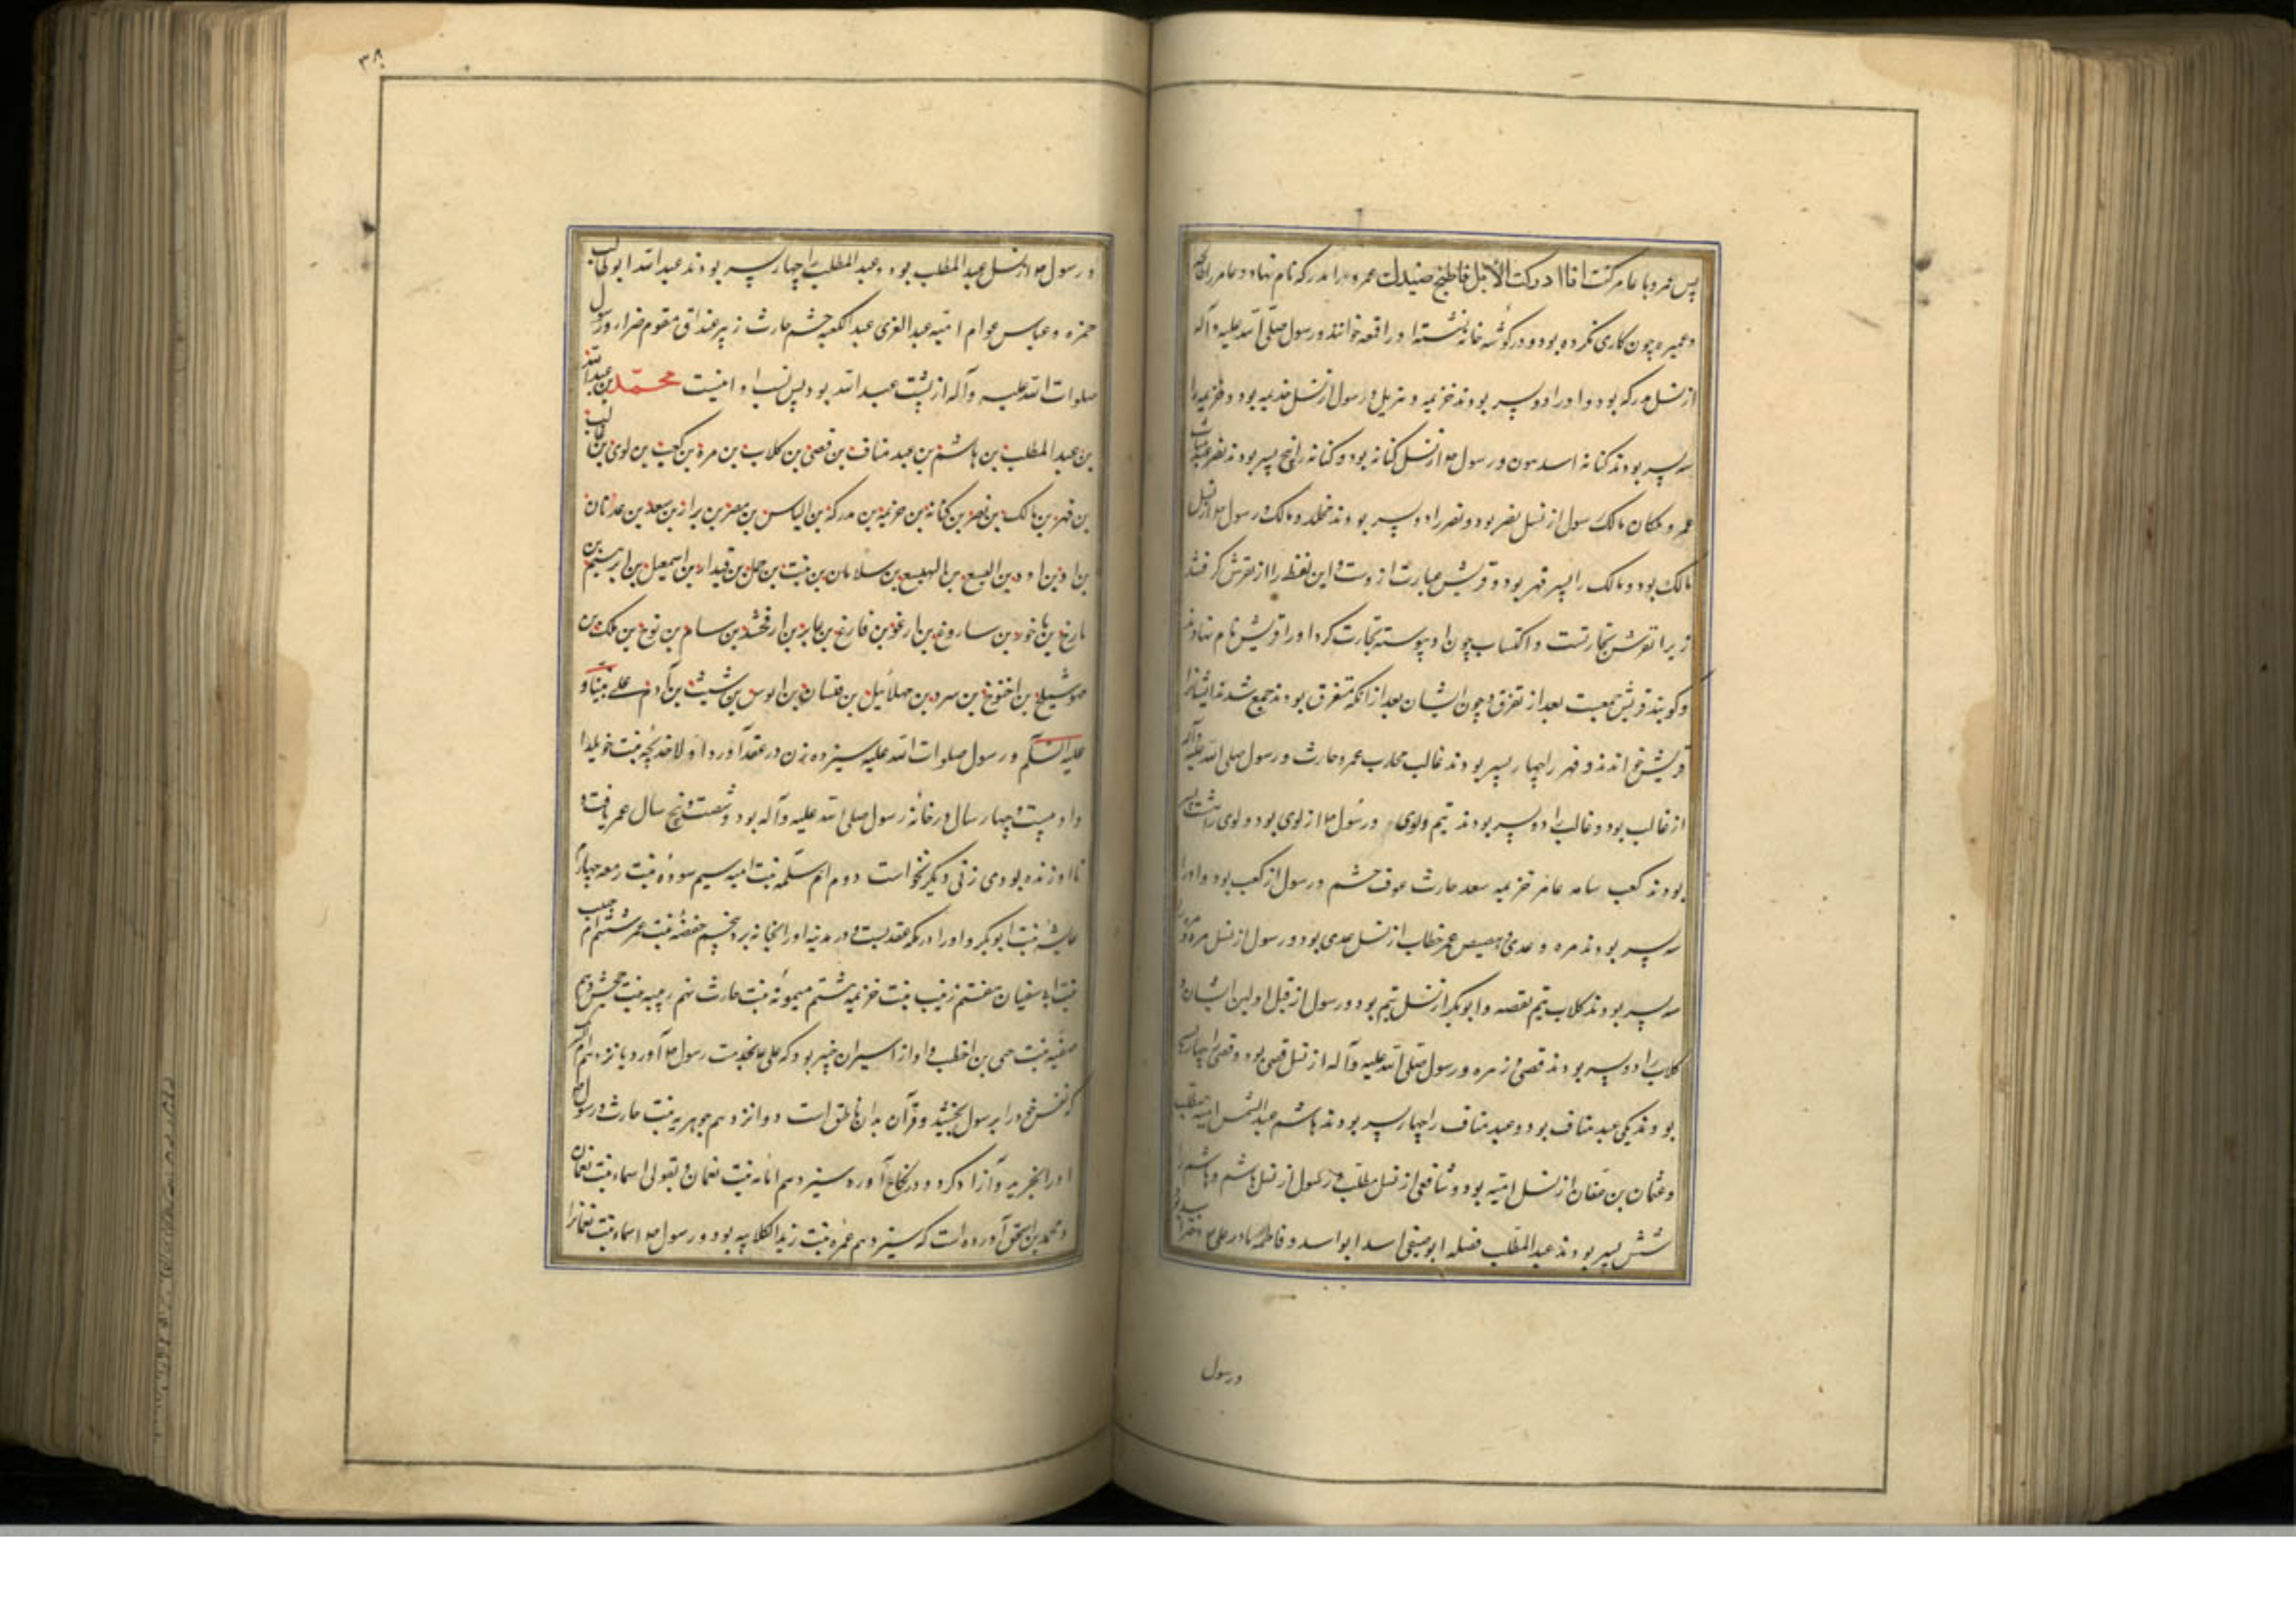 پس عمرو با عامر گفت انا ادرکت الأبل فاطبخ صیدك عمرو را مدرکه نام نهاد و عامر را طابخه
و عمیر چون کاری نکرده بود و در گوشه خانه نشسته او را قمعه خواندند و رسول صلی الله علیه و آله
از نسل مدرکه بود و او را دو پسر بودند خزیمه و هزیل و رسول از نسل خزیمه بود و خزیمه را
سه پسر بودند کنانه اسد هون و رسول از نسل کنانه بود و کنانه را پنج پسر بودند نضر
عمرو ملکان مالک رسول از نسل نضر بود و نضر را دو پسر بودند مخلد و مالک و رسول از نسل
مالک بود و مالک را پسر فهر بود و قریش عبارت ازوست و این لفظ را از تقرش گرفتند
زیرا تقرش تجارتست و اکتساب چون او پیوسته تجارت کرد او را قریش نام نهادند
و گویند قریش جمعیت بعد از تفرق و چون ایشان بعد از انکه متفرق بودند جمع شدند ایشانرا
قریش خواندند و فهر را چهار پسر بودند غالب محارب عمرو حارث و رسول صلی الله علیه وآله
از غالب بود و غالب را دو پسر بودند تیم و لوی و رسول از لوی بود و لوی را هشت پسر
بودند کعب سامه عامر خزیمه سعد حارث عوف جشم و رسول از کعب بود و او را
سه پسر بودند مره و عدی و هصیص عمر خطاب از نسل عدی بود و رسول از نسل مره و مره را
سه پسر بودند کلاب تیم یقصه و ابوبکر از نسل تیم بود و رسول از قبل اولین ایشان و
کلاب را دو پسر بودند قصی و زهره و رسول صلی الله علیه و آله از نسل قصی بود و قصی را چهار پسر
بودند یکی عبد مناف بود و عبد مناف را چهار پسر بودند هاشم عبد الشمس امیه مطلب
و عثمان بن عفان از نسل امیه بود و شافعی از نسل مطلب و رسول از نسل هاشم و هاشم را
شش پسر بودند عبد المطلب فضله ابوصیفی اسد ابو اسد و فاطمه مادر علی دختر اسد بود
و رسول
۳۸
و رسول از نسل عبد المطلب بود و عبد المطلب را چهارده پسر بودند عبد الله ابوطالب
حمزه و عباس عوام امیه عبد العزی عبد الکعبه جشم حارث زبیر غیداق مقوم ضرار و رسول
صلوات الله علیه و آله از پشت عبد الله بود پس نسب او اینست محمد بن عبد الله
بن عبد المطلب بن هاشم بن عبد مناف بن قصی بن کلاب بن مره بن کعب بن لوی بن غالب
بن فهر بن مالک بن نضر بن کنانه بن خزیمه بن مدرکه بن الیاس بن مضر بن نزار بن سعد بن عدنان
بن اد بن ادد بن الیسع بن الهمیسع بن سلامان بن نبت بن حمل بن قیدار بن اسمعیل بن ابرهیم بن
تارخ بن ناخور بن ساروغ بن ارغو بن فارغ بن عابر بن ارفخشد بن سام بن نوح بن ملک بن
متوشلخ بن اخنوخ بن سرد بن مهلائیل بن قینان بن انوش بن شیث بن آدم علی نبینا و
علیه السلام و رسول صلوات الله علیه سیزده زن در عقد آورد اولا خدیجه بنت خویلد
و او بیست و چهار سال در خانه رسول صلی الله علیه و آله بود و شصت و پنج سال عمر یافت و
تا او زنده بودی زنی دیگر نخواست دوم ام سلمه بنت امیه سیم سوده بنت زمعه چهارم
عایشه بنت ابوبکر و او را در مکه عقد بست و در مدینه او را بخانه برد پنجم حفصه بنت عمر ششم ام حبیب
بنت ابو سفیان هفتم زینب بنت خزیمه هشتم میمونه بنت حارث نهم زینب بنت جحش دهم
صفیه بنت حی بن اخطب و او از اسیران خیبر بود که علی بخدمت رسول آورد یازدهم ام شریک
که نفس خود را برسول بخشید و قرآن بدان ناطق است دوانزدهم جویریه بنت حارث و رسول
او را بخرید و آزاد کرد و در نکاح آورد سیزدهم امامه بنت نعمان و بقولی اسماء بنت نعمان
و محمد بن اسحق آورده است که سیزدهم عمره بنت زید الکلابیه بود و رسول اسماء بنت نعمانرا